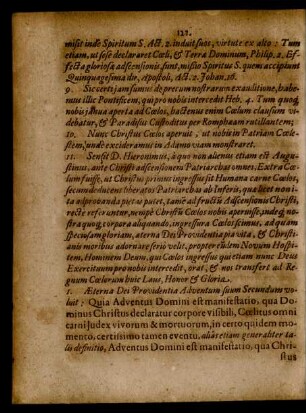 122.
misit inde Spiritum S. Act. 2. induit suos, virtute ex alto : Tum
etiam, ut sese declararet Cœli, & Terra Dominum, Philip. 2. Ef-
fecta gloriosa adscensionis, sunt, missio Spiritus S. quem accipiunt
Quinquagesima die, Apostoli, Act. 2. Johan. 16.
9. Sic certi jam sumus de precum nostrarum exauditione, habe-
mus illic Pontificem, qui pro nobis intercedit Heb. 4. Tum quoq,
nobis janua aperta ad Cœlos, hactenus enim Cœlum clausum vi-
debatur, & Paradisi Custoditur per Romphæam rutillantem;
10. Nunc Christus Cœlos aperuit, ut nobis in Patriam Cœle-
stem, unde excideramus in Adamo viam monstraret.
11. Sensit D. Hieronimus, à quo non alienus etiam est Augu-
stinus, ante Christi adscensionem Patriarchas omnes, Extra Cœ-
lum fuisse, ut Christus primus ingressus sit Humana carne Cœlos,
secum deducens liberatos Patriarchas ab Inferis, qua licet noni-
ta adprobanda piet as putet, tamē ad fructū Adscensionis Christi,
recte referuntur, nempè Christū Cœlos nobis aperuisse, indeq; no-
stra quoq; corpora aliquando, ingressura Cœlos simus, ad quam
spem suam gloriam, æterna Dei Providentia pia vita, & Christi-
anis moribus adornare serio velit, propter eūdem Novum Hospi-
tem, Hominem Deum, qui Cœlos ingressus qui etiam nunc Deus
Exercituum pro nobis intercedit, orat, & nos transfert ad Re-
gnum Cœlorum huic Laus, Honor & Gloria.
1. Æterna Dei Providentia Adventum suum Secundum vo-
luit; Quia Adventus Domini est manifestatio, qua Do-
minus Christus declaratur corpore visibili, Cœlitus omni
carni Judex vivorum & mortuorum, in certo quidem mo-
mento, certissimo tamen eventu, alias etiam generaliter ta-
lis definitio, Adventus Domini est manifestatio, qua Chri-
stus